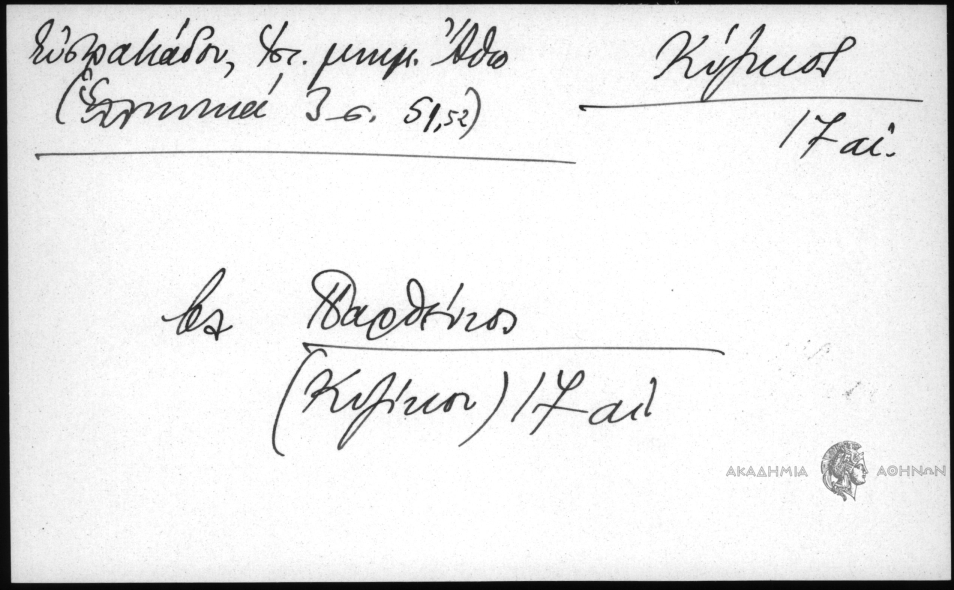 Εὐστρατιάδου, Ἱστ. μνημ. Ἄθω
(Ἑλληνικά 3 σ. 51,52)
Κύζικος
17 αἰ.
βλ Παρθένιος
(Κυζίκου) 17 αἰ
ΑΚΑΔΗΜΙΑ ΑΘΗΝΩΝ